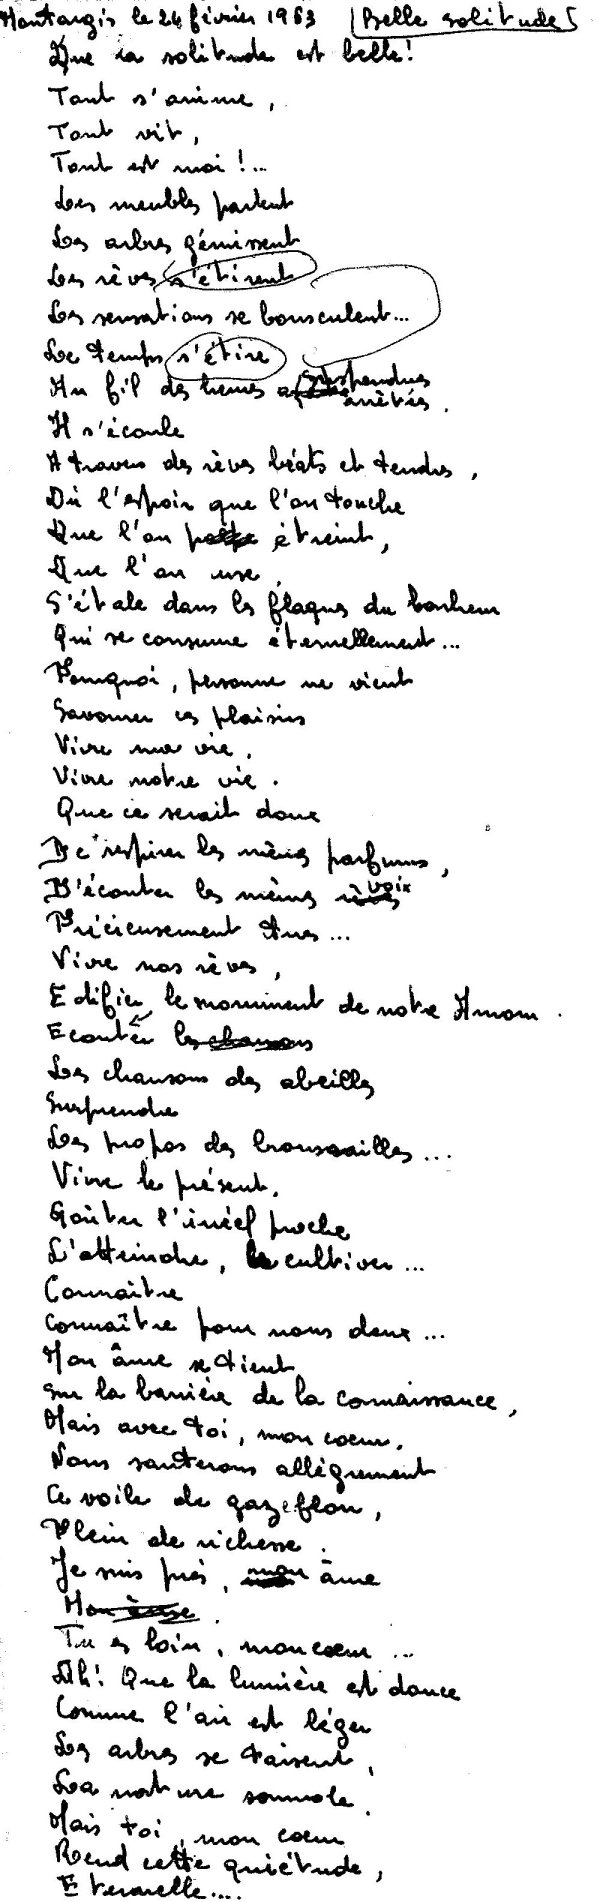 Montargis le 24 février 1963 Belle solitude
Que la solitude est belle!
Tout s'anime,
Tout vit,
Tout est moi!...
Les meubles parlent
Les arbres gémissent
Les rêves s'étirent
Les sensations se bousculent...
Le temps s'étire
Au fil des heures suspendues arrêtés.
Il s'écoule
A travers des rêves béats et tendres,
Où l'espoir que l'on touche
Que l'on étreint,
Que l'on use,
S'étale dans les flaques du bonheur
Qui se consume éternellement...
Pourquoi, personne ne vient
Savourer ces plaisirs
Vivre ma vie,
Vivre notre vie.
Que ce serait doux
De respirer les mêmes parfums,
D'écouter les mêmes rêves voix
Précieusement tues...
Vivre nos rêves,
Edifier le monument de notre Amour.
Ecouter les chansons
Les chansons des abeilles
Surprendre
Les propos des broussailles...
Vivre le présent,
Goûter l'irréel proche
L'atteindre, le cultiver...
Connaître
Connaître pour nous deux...
Mon âme se tient
Sur la barrière de la connaissance,
Mais avec toi, mon coeur,
Nous sauterons allégrement
Ce voile de gaze flou,
Plein de richesse.
Je suis près, mon âme
Mon âme
Tu es loin, mon coeur...
Ah! Que la lumière est douce
Comme l'air est léger
Les arbres se taisent,
La nature somnole.
Mais toi, mon coeur
Rend cette quiétude,
Eternelle....